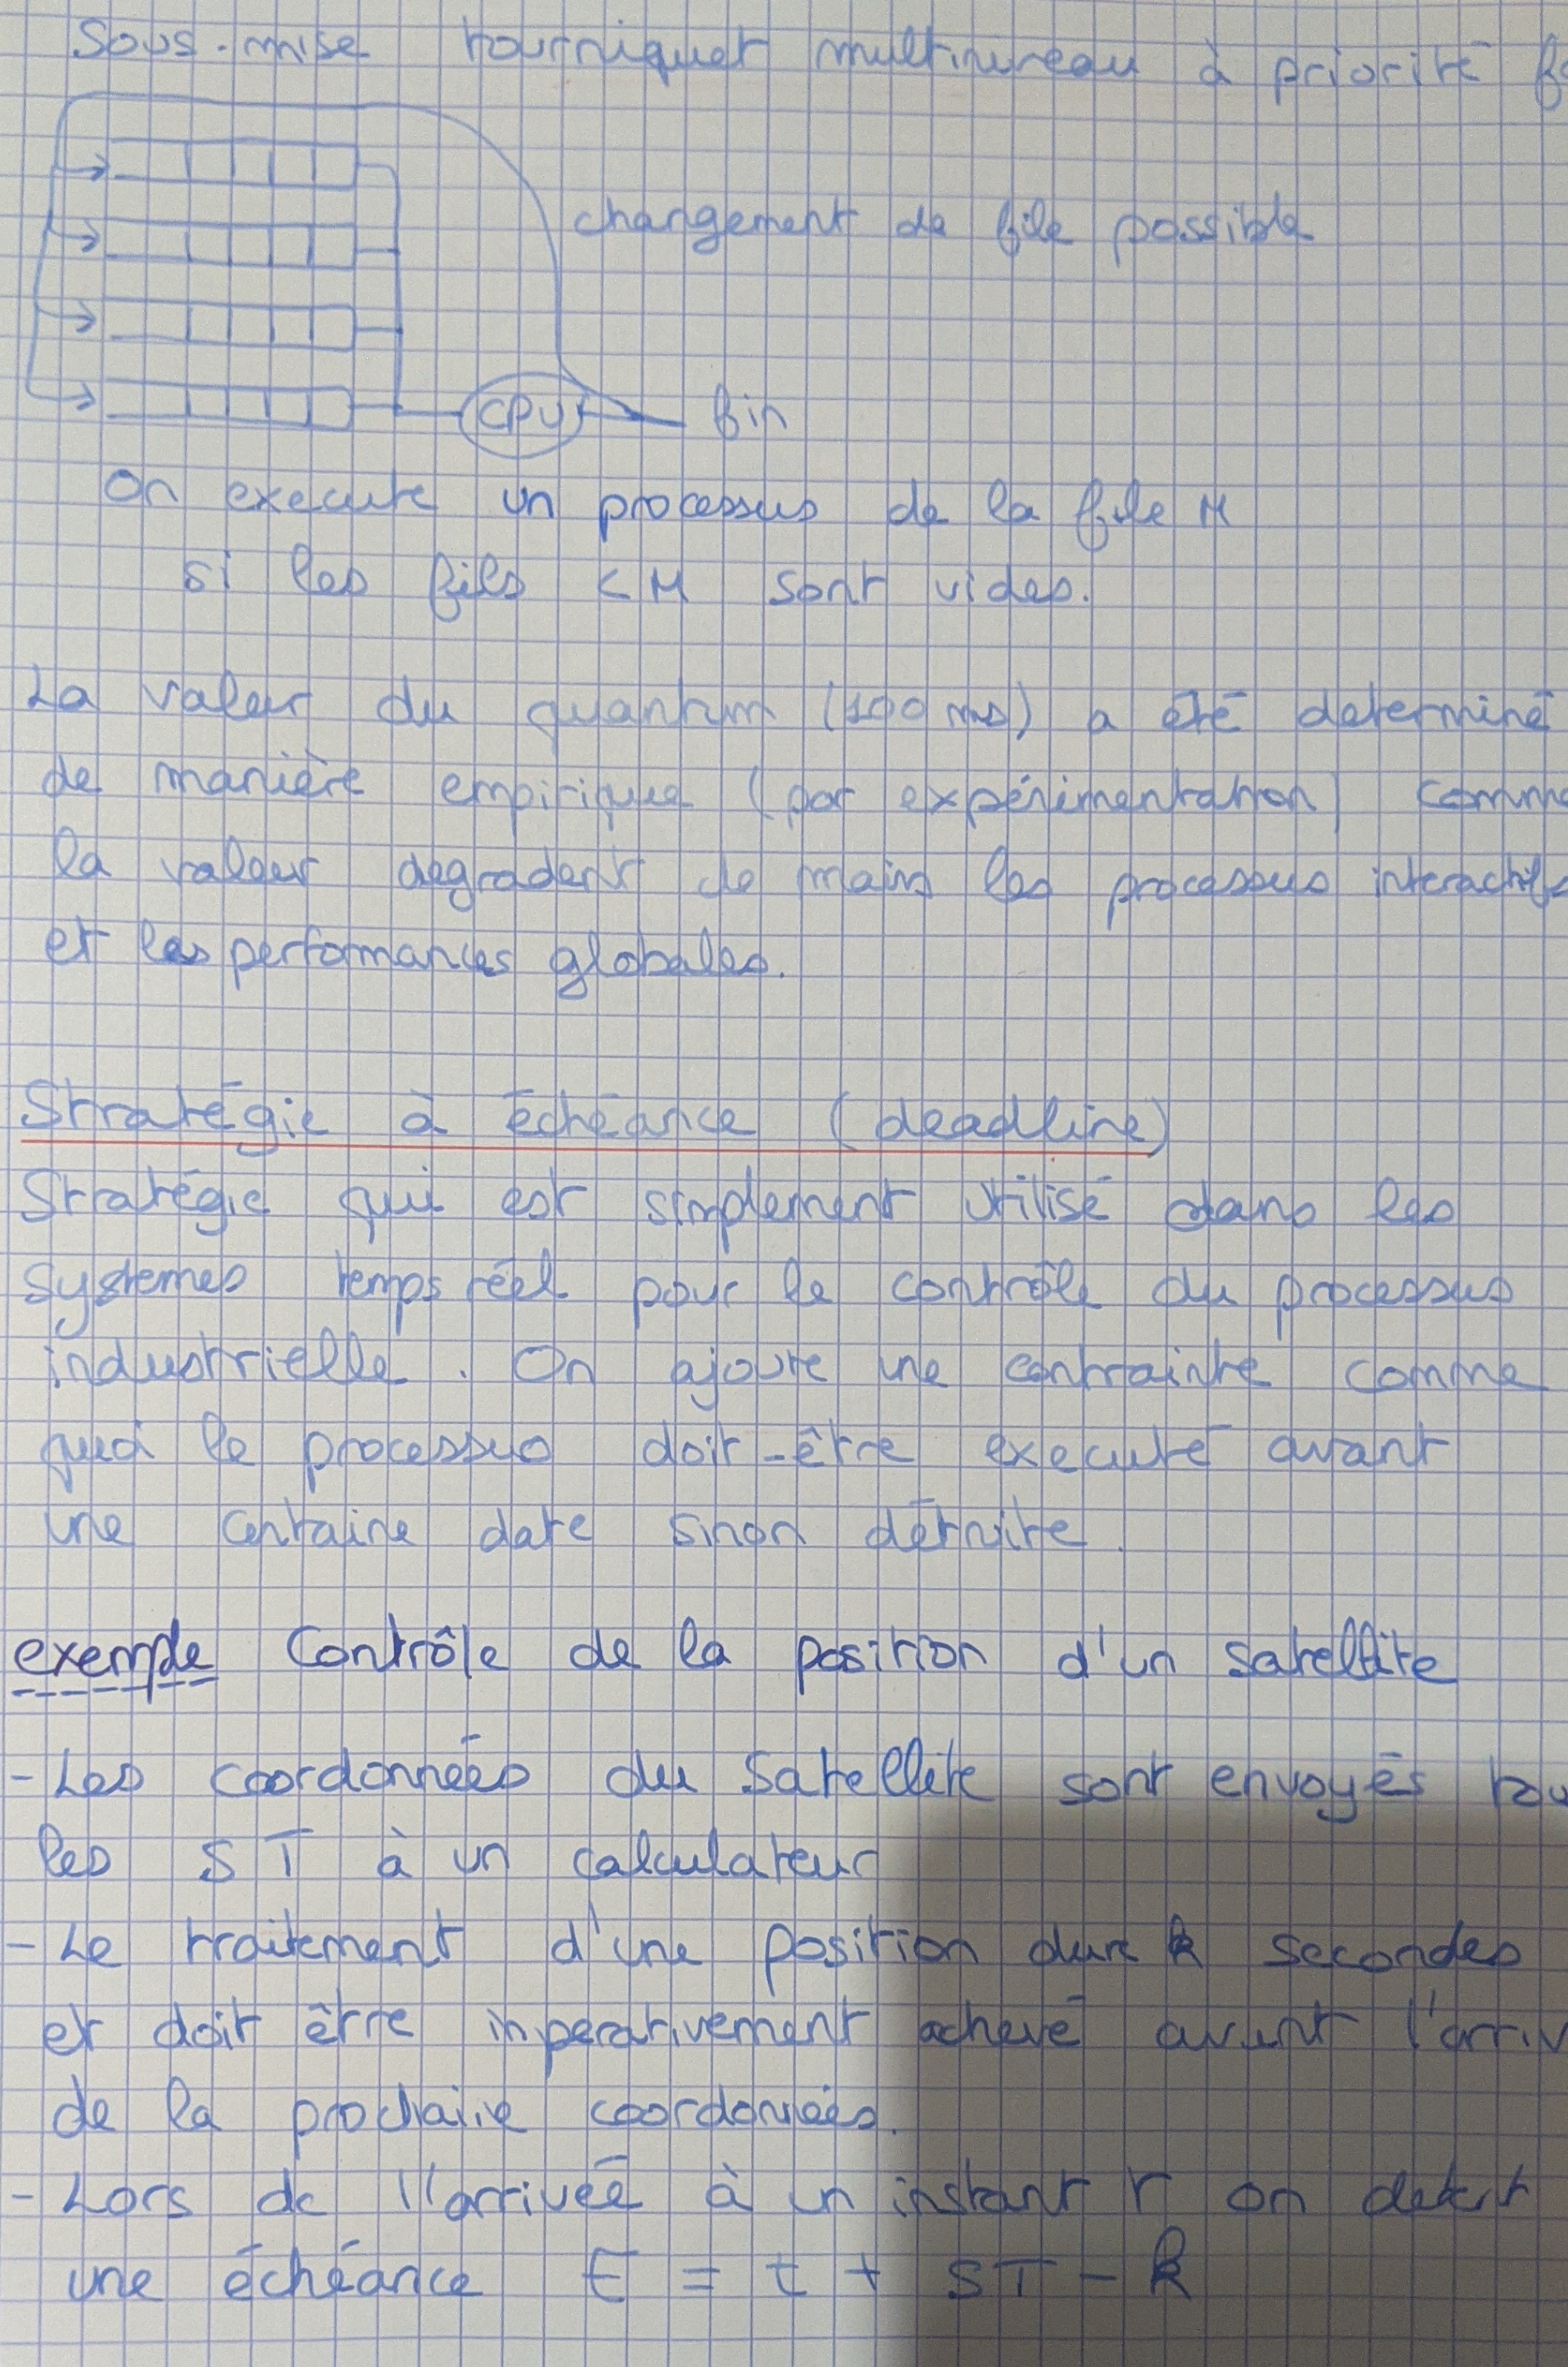 Sous-mise tourniquet multiniveau à priorité
changement de file possible
CPU fin
On execute un processus de la file M
si les fils < M sont vides.
La valeur du quantum (100 ms) a été determiné
de manière empirique (par expérimentation) comme
la valeur degradent de main les processus interactifs
et les performances globales.
Stratégie à échéance (deadline)
Stratégie qui est simplement utilisé dans les
systemes temps réel pour le contrôle du processus
industrielle. On ajoute une contrainte comme
quoi le processus doit-être executé avant
une centaine date sinon détruite.
exemple Contrôle de la position d'un satellite
- Les coordonnées du Satellite sont envoyés tou
les ST à un calculateur
- Le traitement d'une position dure k secondes
et doit être inperativement achevé avant l'arriv
de la prochaine coordonnées.
- Lors de l'arrivée à un instant t on
une échéance E = t + ST - k